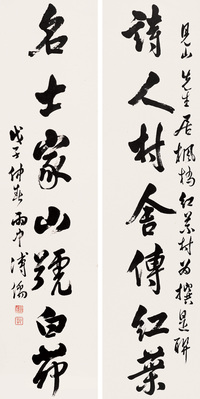 見山先生居楓橋紅葉村為撰是聯
詩人村舍傳紅葉
名士家山號白茆
戊子仲春雨中溥儒